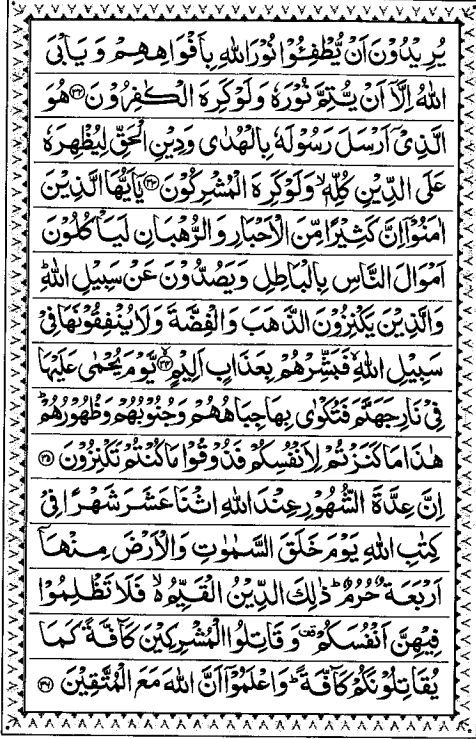 يُرِيْدُوْنَ اَنْ يُّطْفِـُٔوْا نُوْرَ اللّٰهِ بِاَفْوَاهِهِمْ وَيَاْبَى
اللّٰهُ اِلَّاۤ اَنْ يُّتِمَّ نُوْرَهٗ وَلَوْ كَرِهَ الْكٰفِرُوْنَ ۝۳۲ هُوَ
الَّذِيْۤ اَرْسَلَ رَسُوْلَهٗ بِالْهُدٰى وَدِيْنِ الْحَقِّ لِيُظْهِرَهٗ
عَلَى الدِّيْنِ كُلِّهٖ ۙ وَلَوْ كَرِهَ الْمُشْرِكُوْنَ ۝۳۳ يٰۤاَيُّهَا الَّذِيْنَ
اٰمَنُوْۤا اِنَّ كَثِيْرًا مِّنَ الْاَحْبَارِ وَالرُّهْبَانِ لَيَاْكُلُوْنَ
اَمْوَالَ النَّاسِ بِالْبَاطِلِ وَيَصُدُّوْنَ عَنْ سَبِيْلِ اللّٰهِ ؕ
وَالَّذِيْنَ يَكْنِزُوْنَ الذَّهَبَ وَالْفِضَّةَ وَلَا يُنْفِقُوْنَهَا فِيْ
سَبِيْلِ اللّٰهِ ۙ فَبَشِّرْهُمْ بِعَذَابٍ اَلِيْمٍ ۝۳۴ يَّوْمَ يُحْمٰى عَلَيْهَا
فِيْ نَارِ جَهَنَّمَ فَتُكْوٰى بِهَا جِبَاهُهُمْ وَجُنُوْبُهُمْ وَظُهُوْرُهُمْ ؕ
هٰذَا مَا كَنَزْتُمْ لِاَنْفُسِكُمْ فَذُوْقُوْا مَا كُنْتُمْ تَكْنِزُوْنَ ۝۳۵
اِنَّ عِدَّةَ الشُّهُوْرِ عِنْدَ اللّٰهِ اثْنَا عَشَرَ شَهْرًا فِيْ
كِتٰبِ اللّٰهِ يَوْمَ خَلَقَ السَّمٰوٰتِ وَالْاَرْضَ مِنْهَاۤ
اَرْبَعَةٌ حُرُمٌ ؕ ذٰلِكَ الدِّيْنُ الْقَيِّمُ ۙ۬ فَلَا تَظْلِمُوْا
فِيْهِنَّ اَنْفُسَكُمْ ۫ وَقَاتِلُوا الْمُشْرِكِيْنَ كَآفَّةً كَمَا
يُقَاتِلُوْنَكُمْ كَآفَّةً ؕ وَاعْلَمُوْۤا اَنَّ اللّٰهَ مَعَ الْمُتَّقِيْنَ ۝۳۶